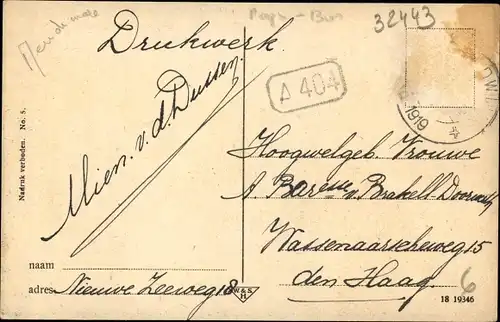 32443
Drukwerk
A 404
1919
Mien. v. d. Dussen.
Nadruk verboden. No. 5.
Hoogwelgeb. Vrouwe
A Baresse v. Brakell-Doorwerth
Wassenaarscheweg 15
den Haag.
naam
adres: Nieuwe Zeeweg 18
W. & S.
H
6
18 19346